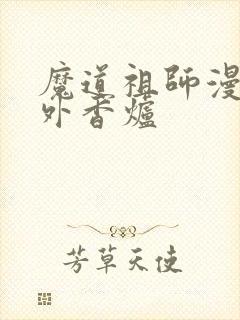 魔道祖師漫
外香爐
芳草天使